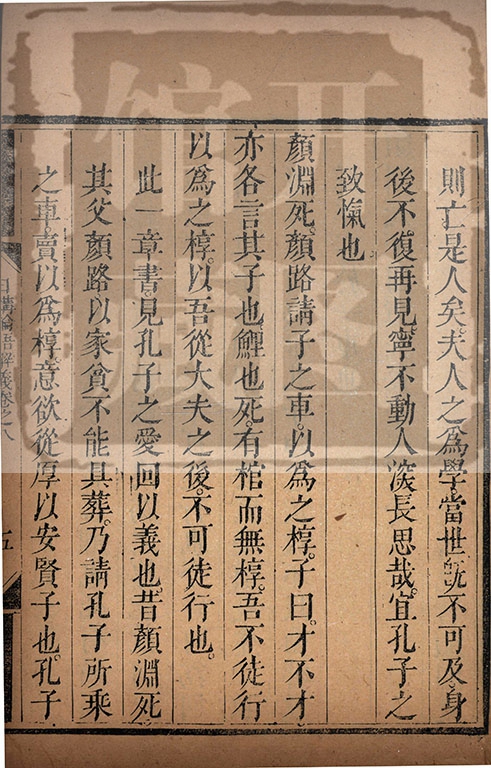 則亡是人矣。夫人之爲學當世旣不可及身
後不復再見。寧不動人深長思哉。宜孔子之
致愾也
顏淵死。顏路請子之車。以爲之椁。子曰。才不才
亦各言其子也。鯉也死。有棺而無椁。吾不徒行
以爲之椁。以吾從大夫之後。不可徒行也。
此一章書。見孔子之愛回以義也。昔顏淵死
其父顏路以家貧不能具葬。乃請孔子所乘
之車。賣以爲椁。意欲從厚以安賢子也。孔子
日講論語解義卷之八
五